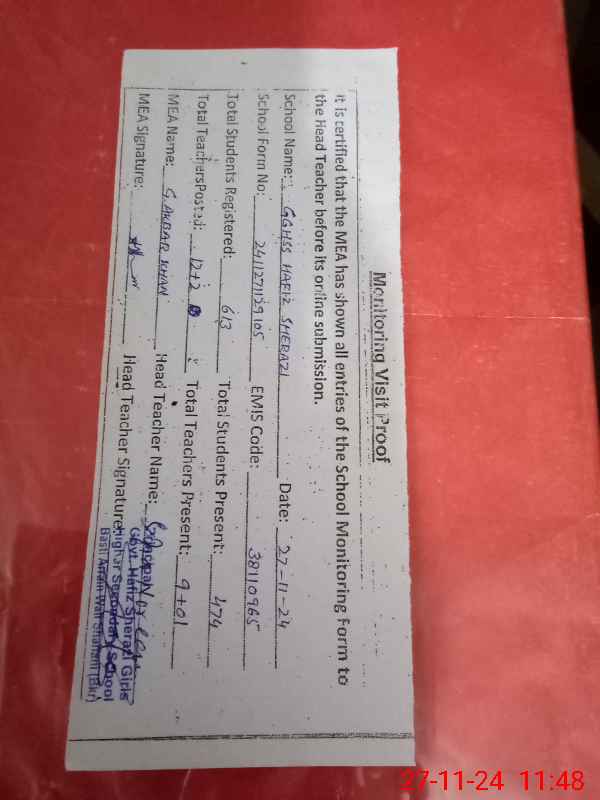 Monitoring Visit Proof
It is certified that the MEA has shown all entries of the School Monitoring Form to
the Head Teacher before its online submission.
School Name: GGHSS HAFIZ SHERAZI Date: 27-11-24
School Form No: 2411271129105 EMIS Code: 38110965
Total Students Registered: 613 Total Students Present: 474
Total Teachers Posted: 12+2 Total Teachers Present: 9+01
MEA Name: G. AKBAR KHAN Head Teacher Name:
MEA Signature: Head Teacher Signature:
Principal
Govt. Hafiz Sherazi Girls
Higher Secondary School
Basti Arrain Wali Shahani (Bkr)
27-11-24 11:48